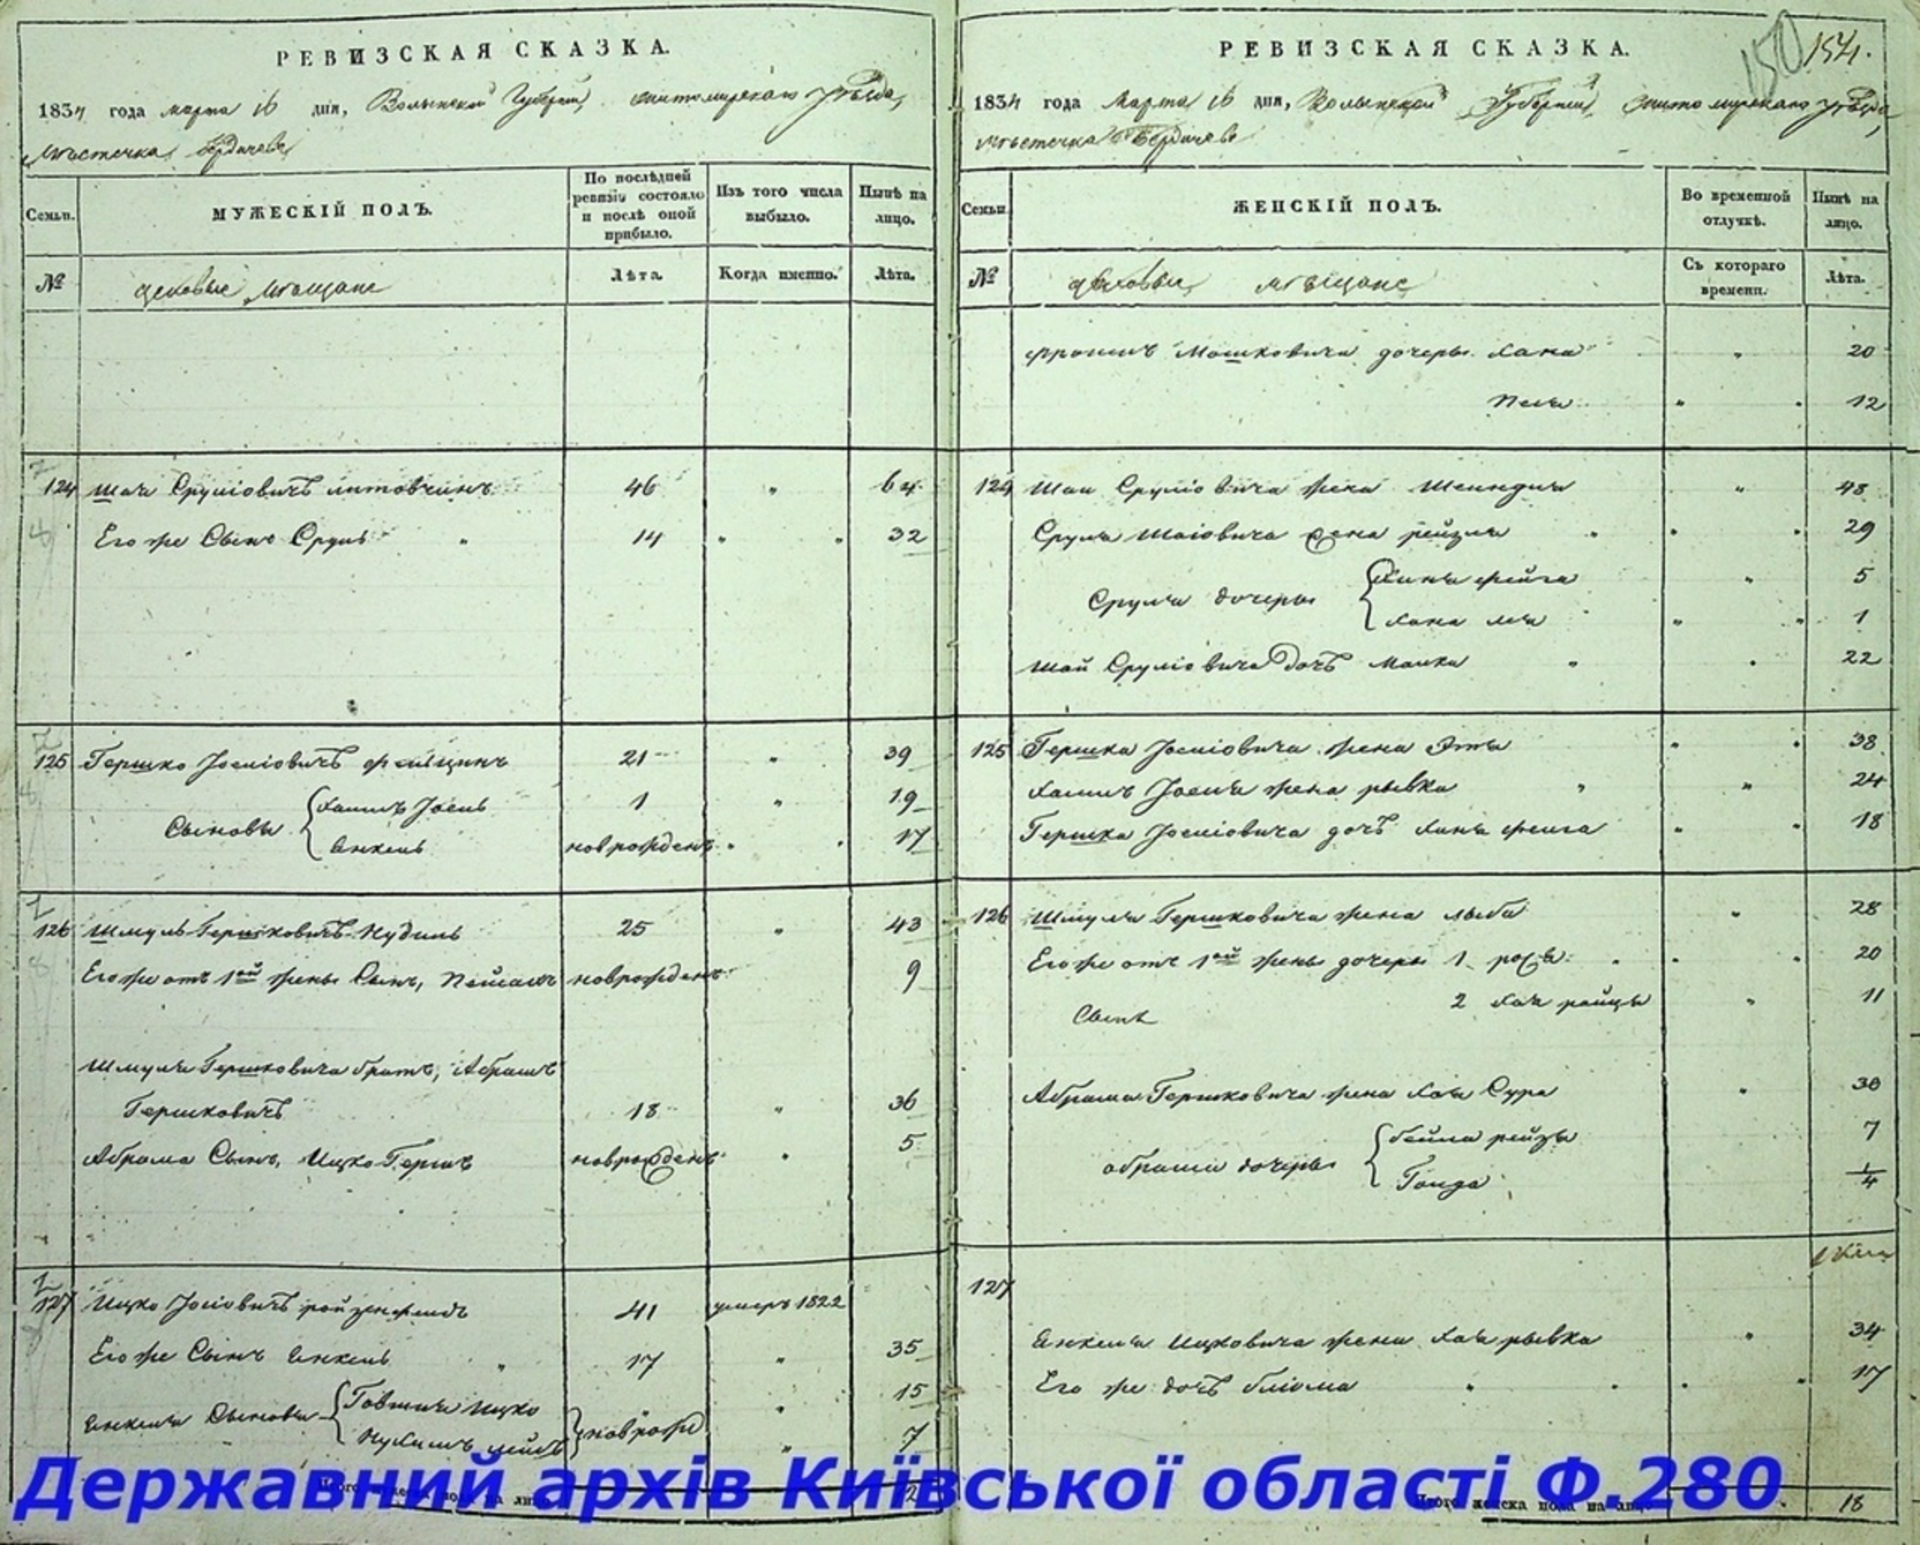 РЕВИЗСКАЯ СКАЗКА.
1834 года марта 16 дня, Волынской Губернии Житомирского уезда,
Местечка Бердичева
Семьи.
МУЖЕСКІЙ ПОЛЪ.
По послѣдней ревизіи состояло и послѣ оной прибыло.
Изъ того числа выбыло.
Нынѣ на лицо.
№
цеховые мещане
Лѣта.
Когда именно.
Лѣта.
124 Шая Сруліовичъ Литовчинъ 46 " 64
Его же Сынъ Сруль " 14 " " 32
125 Гершко Іосиіовичъ 21 " 39
Сыновья Хаимъ Іось 1 " 19
Янкель новорожденъ " 17
126 Шмуль Гершковичъ Нудель 25 " 43
Его же отъ 1ой жены Сынъ, Пейсахъ новорожденъ 9
Шмуля Гершковича братъ, Абрамъ
Гершковичъ 18 " 36
Абрама Сынъ, Ицко Гершъ новорожденъ " 5
127 Ицко Іосіовичъ Ройзенфельдъ 41 умеръ 1822
Его же Сынъ Янкель " 17 " 35
Янкеля Сыновья Говшия Ицко " 15
Нухимъ Лейбъ новорож " 7
РЕВИЗСКАЯ СКАЗКА.
150 154.
1834 года Марта 16 дня, Волынской Губернии Житомирского уезда,
местечка Бердичева
Семьи.
ЖЕНСКІЙ ПОЛЪ.
Во временной отлучкѣ.
Нынѣ на лицо.
№
цеховые мещане
Съ котораго времени.
Лѣта.
Мошковича дочеры Хана " 20
Песя " 12
124 Шаи Сруліовича жена Шейндля " 48
Сруля Шаіовича жена Рейзля " 29
Сруля дочеры Хина Фейга " 5
Хана Лея " 1
Шаи Сруліовича дочъ Малка " 22
125 Гершка Іосиіовича жена Этя " 38
Хаимъ Іося жена Рывка " 24
Гершка Іосиіовича дочъ Хина Фейга " 18
126 Шмуля Гершковича жена Лыба " 28
Его же отъ 1ой жены дочеры 1 Рохля " 20
2 Хая Райця " 11
Абрама Гершковича жена Хая Сура " 30
Абрама дочеры Бейла Рейзя 7
Гольда 1/4
127
Янкеля Ицковича жена Хая Рывка " 34
Его же дочъ Блюма " 17
Итого женска пола на лицо 18
Державний архів Київської області Ф.280